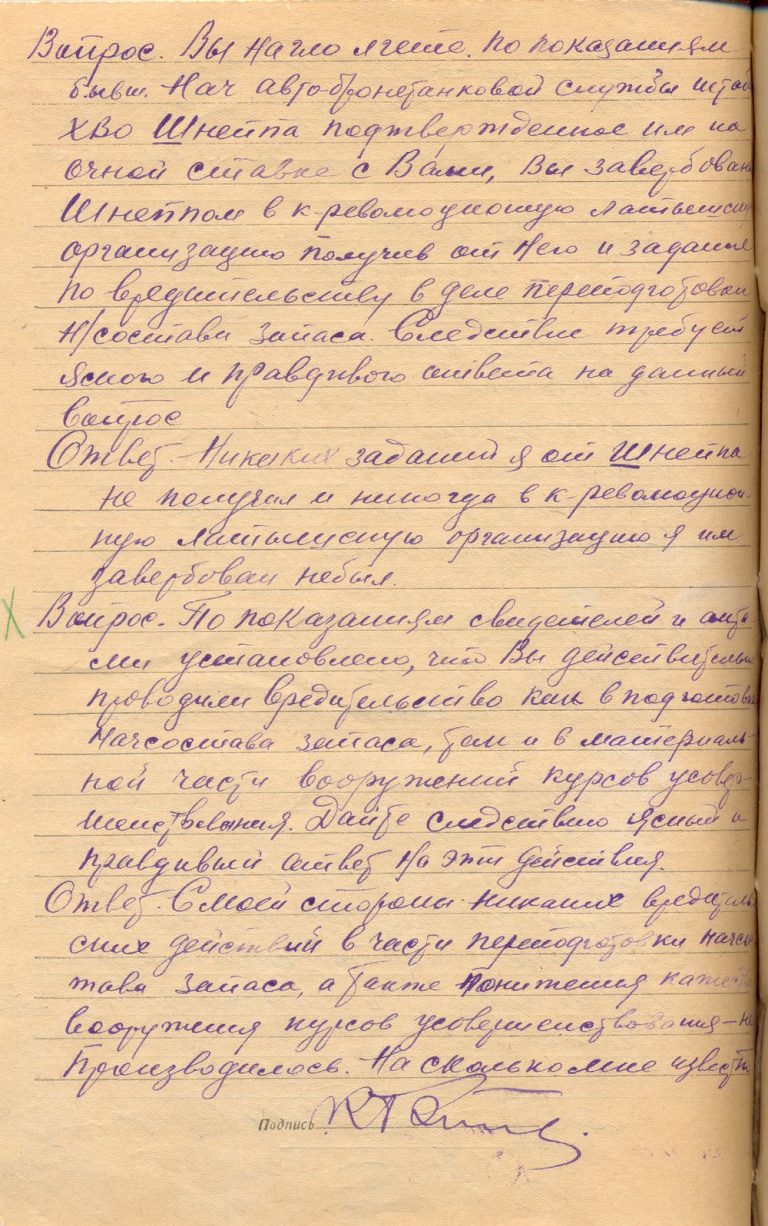 Вопрос. Вы нагло лжете. По показаниям
бывш. Нач автобронетанковой службы штаба
ХВО Шнейпа подтвержденное им на
очной ставке с Вами, Вы завербован
Шнеппом в к-революционную латышскую
организацию получив от него и задание
по вредительству в деле переподготовки
н/состава запаса. Следствие требует
ясного и правдивого ответа на данный
вопрос
Ответ. Никаких заданий я от Шнейпа
не получал и никогда в к-революцион-
ную латышскую организацию я им
завербован небыл.
Вопрос. По показаниям свидетелей и
установлено, что Вы действительно
проводили вредительство как в подготовке
начсостава запаса, так и в материаль-
ной части вооружений курсов усовер-
шенствования. Дайте следствию ясный и
правдивый ответ на эти действия.
Ответ. С моей стороны никаких вредитель
ских действий в части переподготовки начсо
става запаса, а также понижения качества
вооружия курсов усовершенствования – не
производилось. На сколько мне известно
Подпись